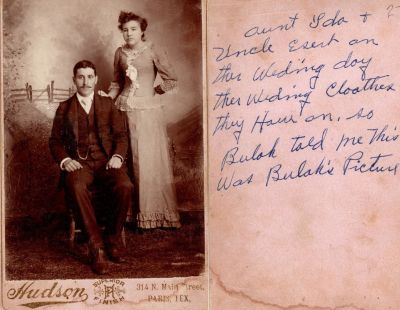 Hudson
SUPERIOR
FINISH
314 N. Main Street,
PARIS, TEX.
aunt Ida +
Uncle Esert on
ther Weding day
ther Weding Cloathes
they Have on, so
Bulah told me This
Was Bulah's Picture